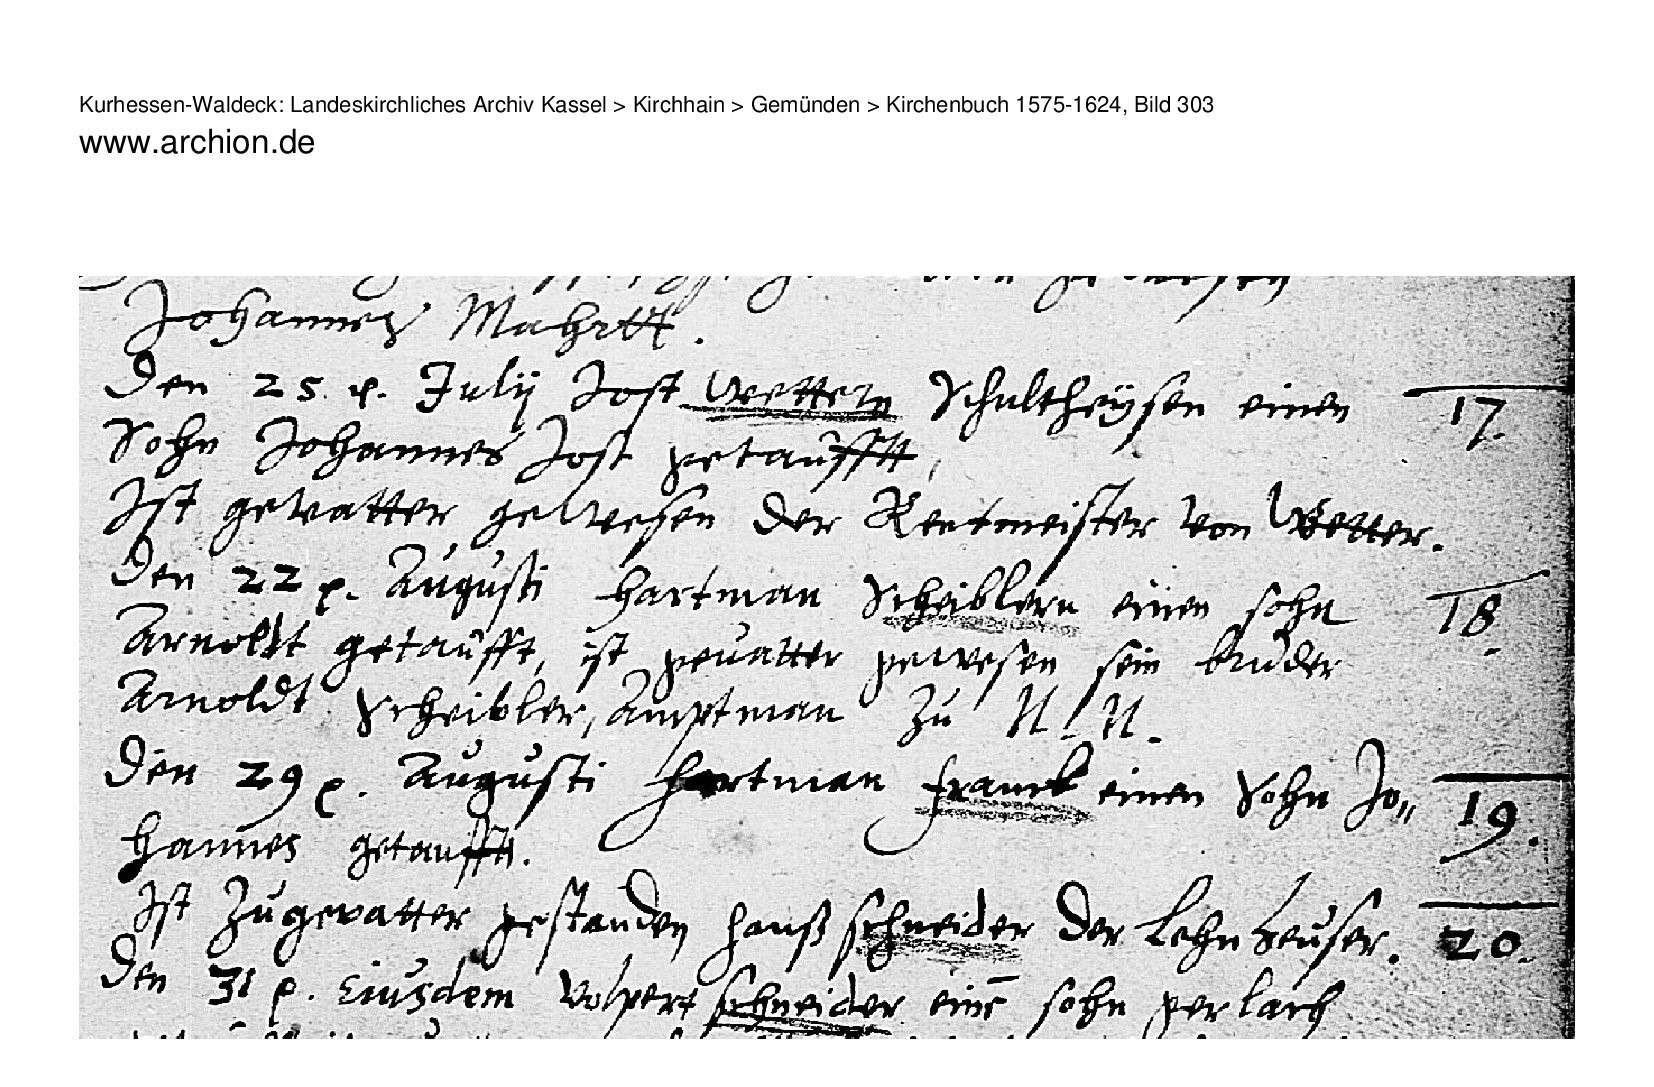 Kurhessen-Waldeck: Landeskirchliches Archiv Kassel > Kirchhain > Gemünden > Kirchenbuch 1575-1624, Bild 303
www.archion.de
Johannes
Den 25. p. Julij Jost Wettern Schultheysen einen 17.
Sohn Johannes Jost getaufftt,
Ist gevatter gewesen der Rentmeister von Wetter.
Den 22 p. Augusti Hartman Scheiblern einen sohn 18.
Arnoldt getaufft, ist gevatter gewesen sein bruder
Arnoldt Scheibler, Amptman zu N. N.
Den 29 p. Augusti Hartman Franck einen Sohn Jo„ 19.
hannes getaufftt.
Ist Zugevatter gestanden Hanß schneider der Lehnheuser. 20.
Den 31 p. Eiusdem Volpert schneider einē sohn gerlach